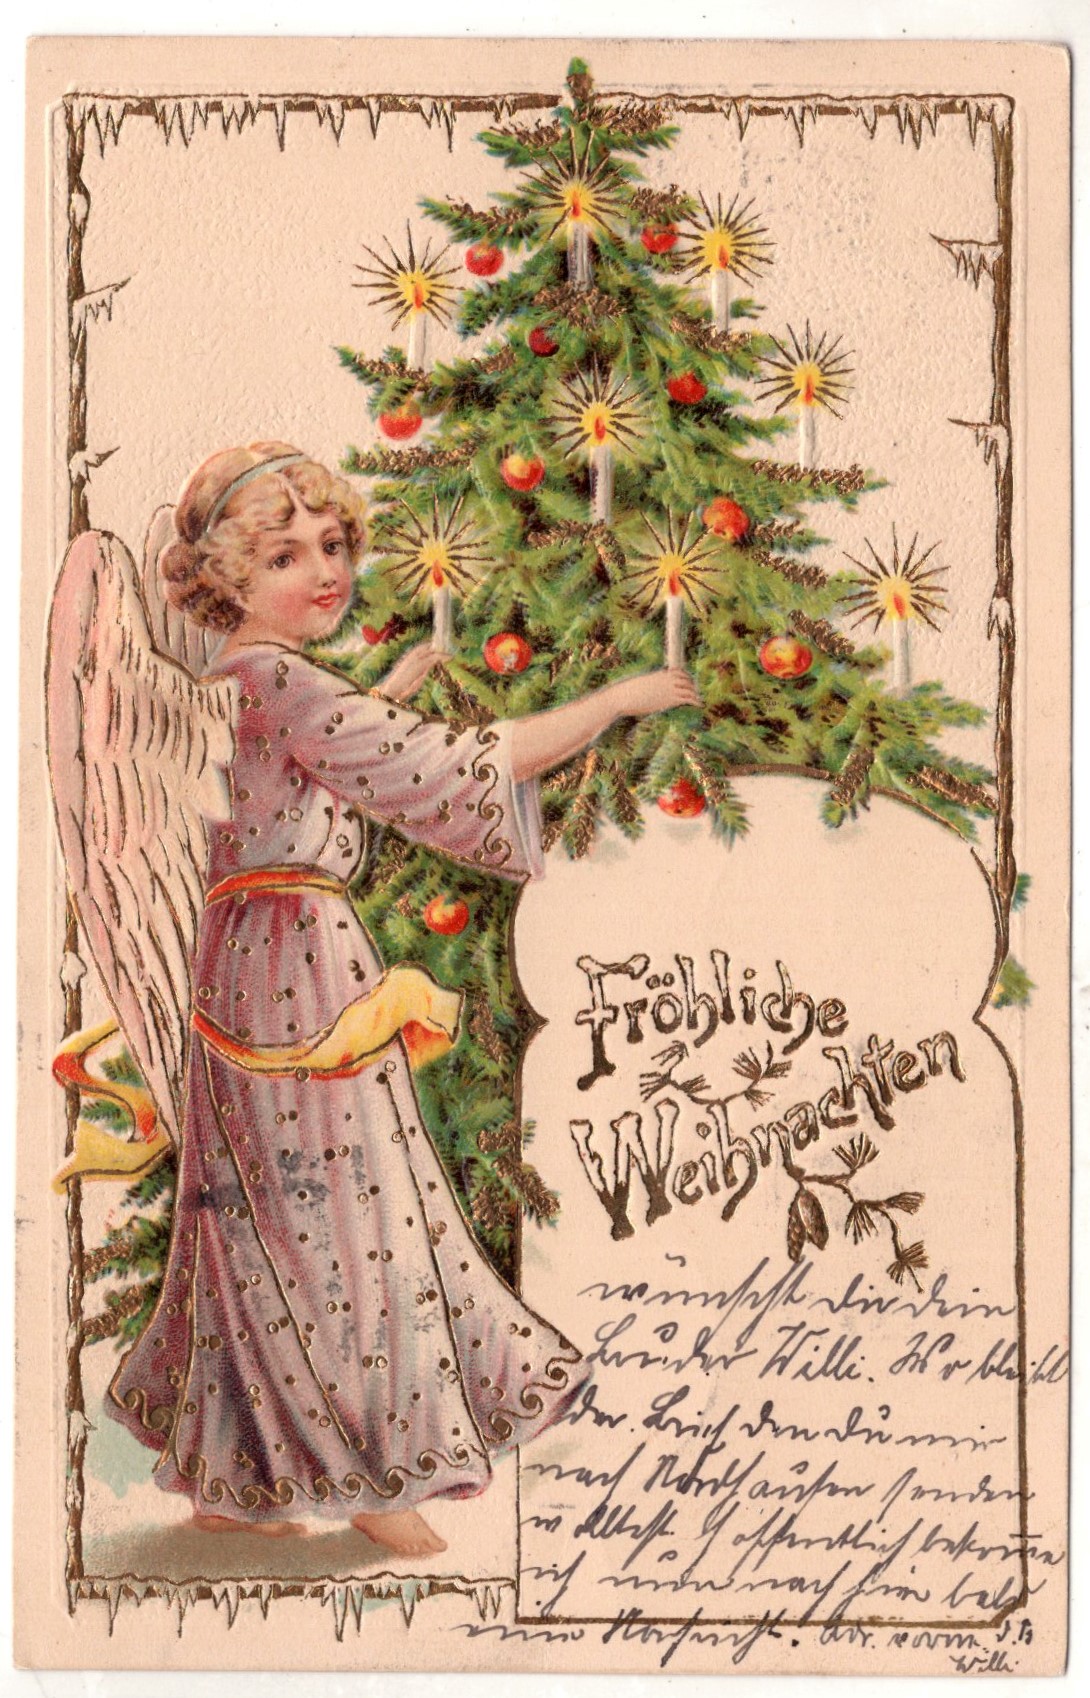 Fröhliche
Weihnachten
wünscht dir dein
Bruder Willi. Wo bleibt
der Brief den du mir
nach Nordhausen senden
wolltest. Hoffentlich bekomme
ich nun nach hier bald
eine Nachricht. Adr. vorm. d. B
Willi